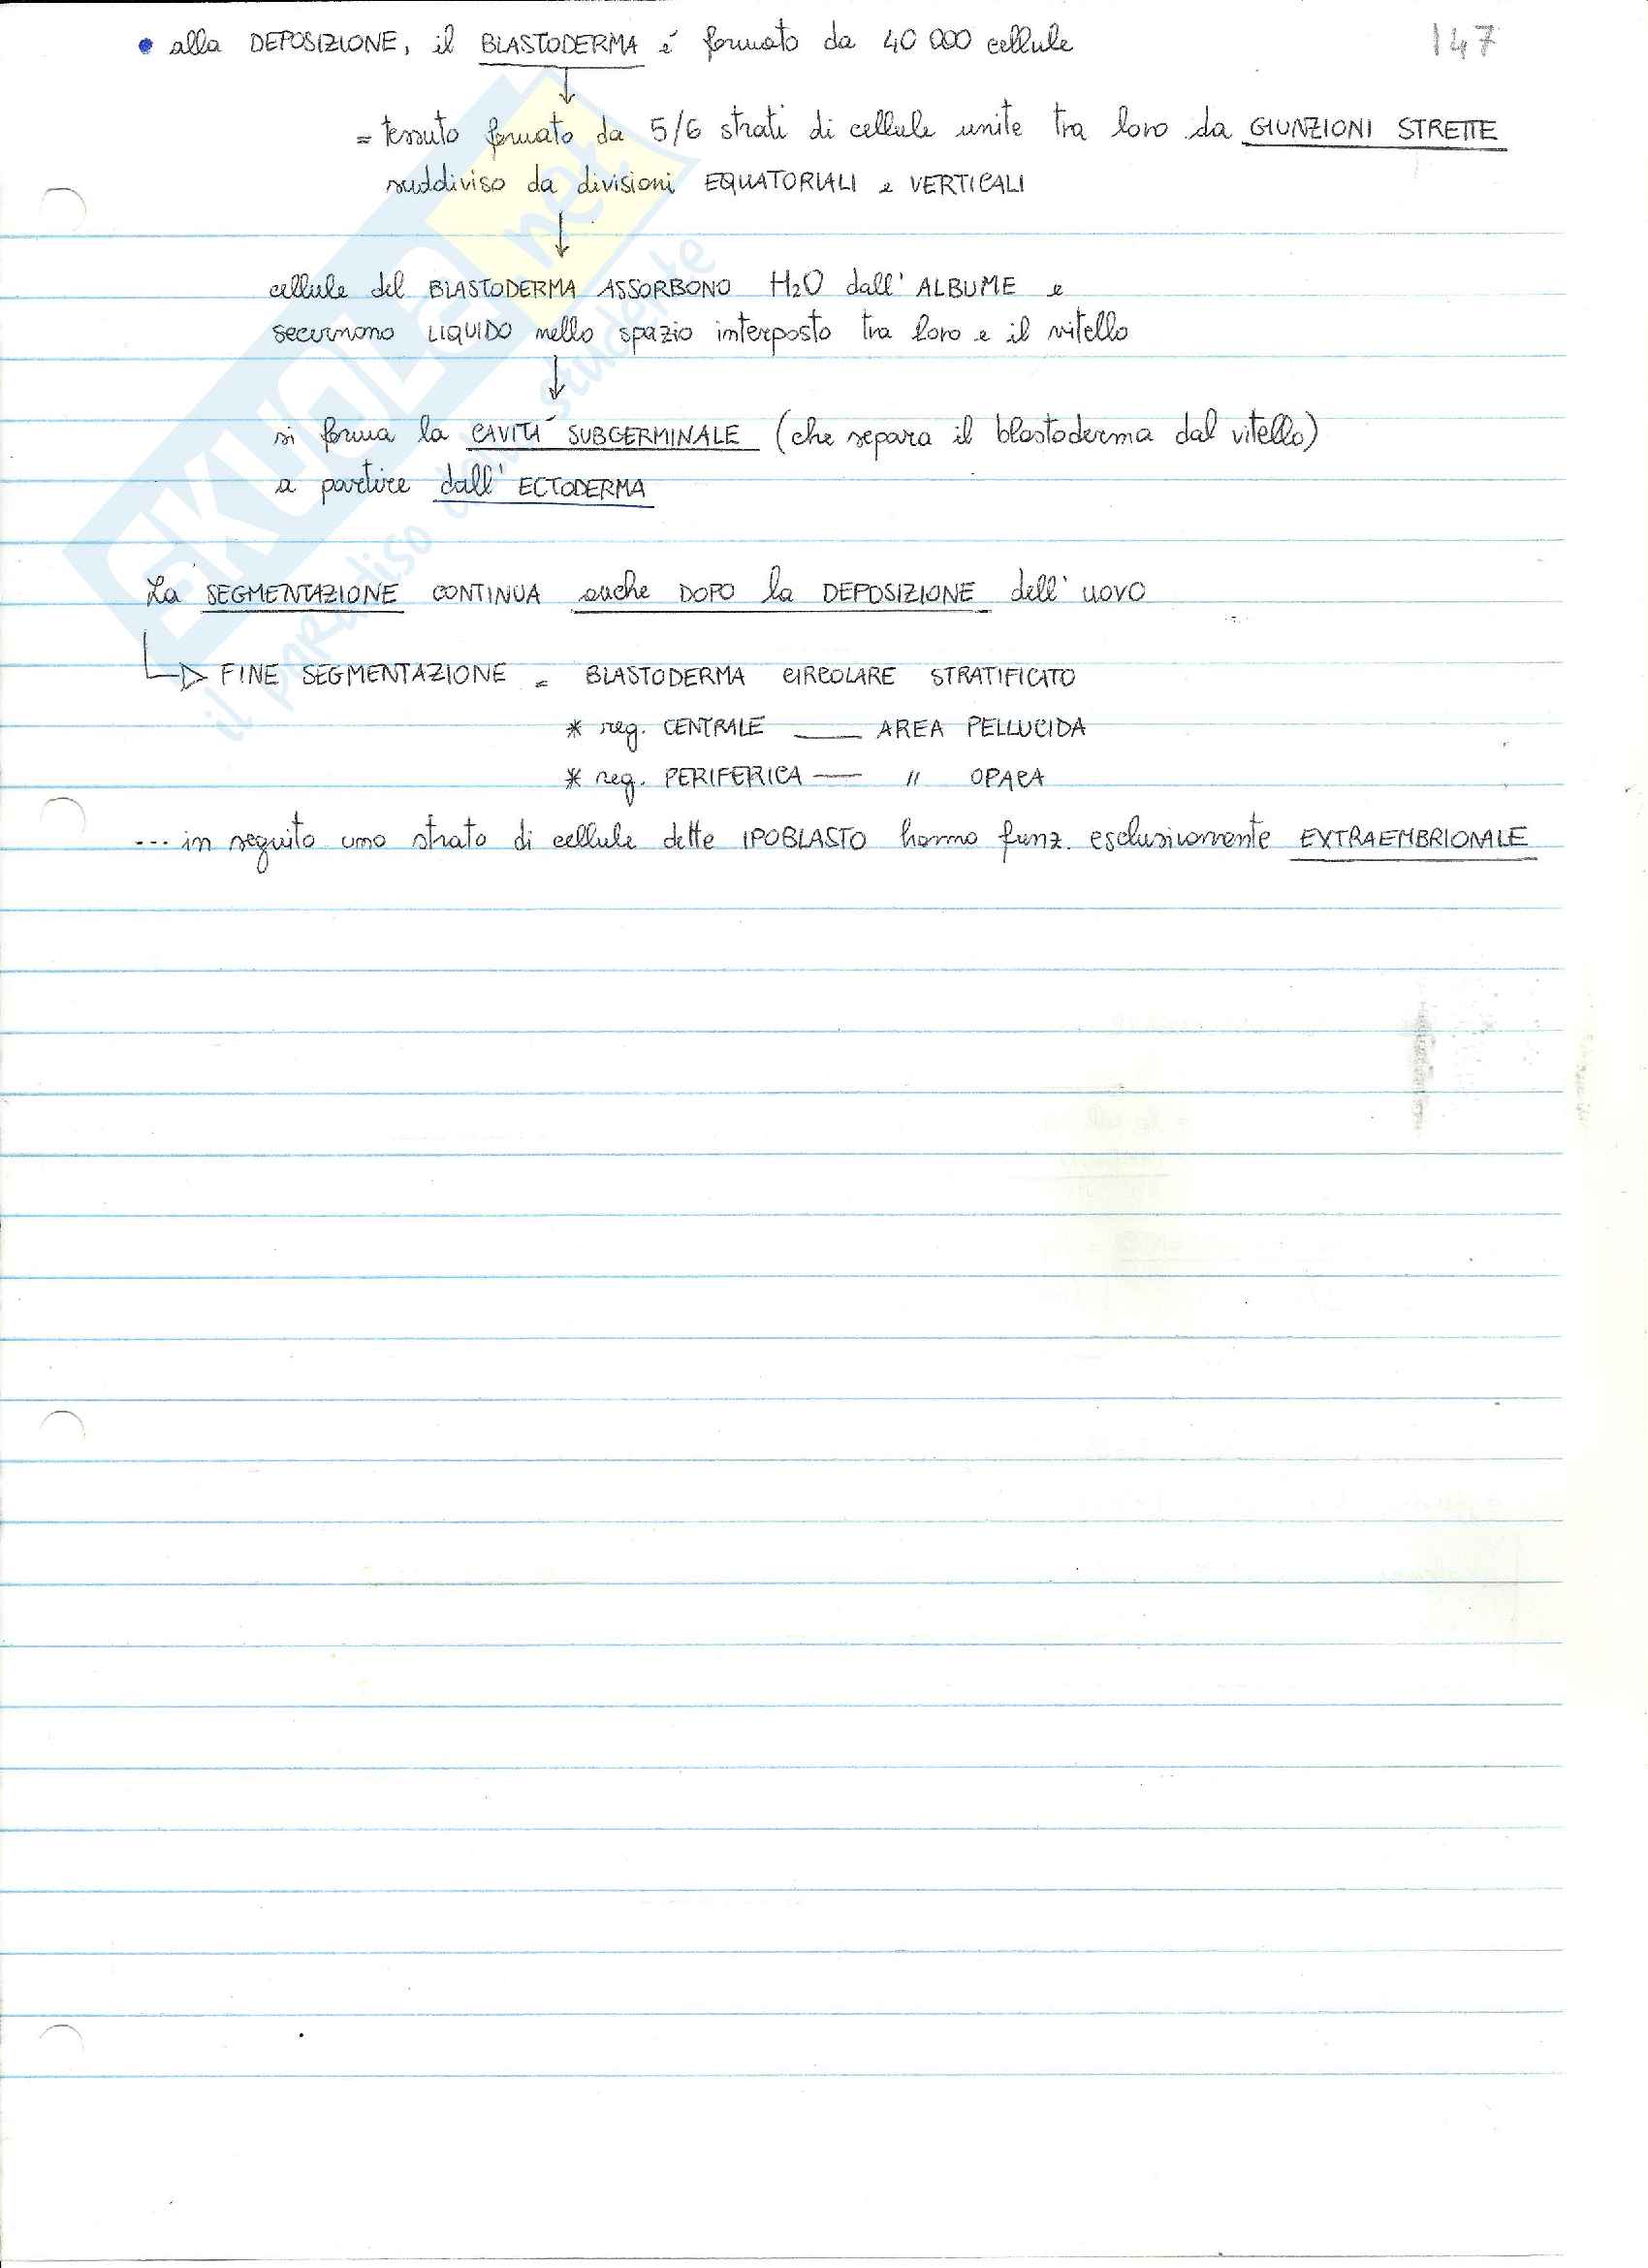 • alla DEPOSIZIONE, il BLASTODERMA é formato da 40 000 cellule
147
= tessuto formato da 5/6 strati di cellule unite tra loro da GIUNZIONI STRETTE
suddiviso da divisioni EQUATORIALI e VERTICALI
cellule del BLASTODERMA ASSORBONO H2O dall' ALBUME e
secernono LIQUIDO nello spazio interposto tra loro e il vitello
si forma la CAVITÁ SUBGERMINALE (che separa il blastoderma dal vitello)
a partire dall' ECTODERMA
La SEGMENTAZIONE CONTINUA anche DOPO la DEPOSIZIONE dell' uovo
FINE SEGMENTAZIONE = BLASTODERMA CIRCOLARE STRATIFICATO
* reg. CENTRALE — AREA PELLUCIDA
* reg. PERIFERICA — " OPACA
... in seguito uno strato di cellule dette IPOBLASTO hanno funz. esclusivamente EXTRAEMBRIONALE
SKUOLA.net
il paradiso dello studente